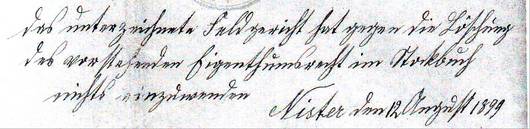 das unterzeichnete Feldgericht hat gegen die Löschung
des vorstehenden Eigenthumsrecht im Stockbuch
nichts einzuwenden
Nister den 12 August 1899